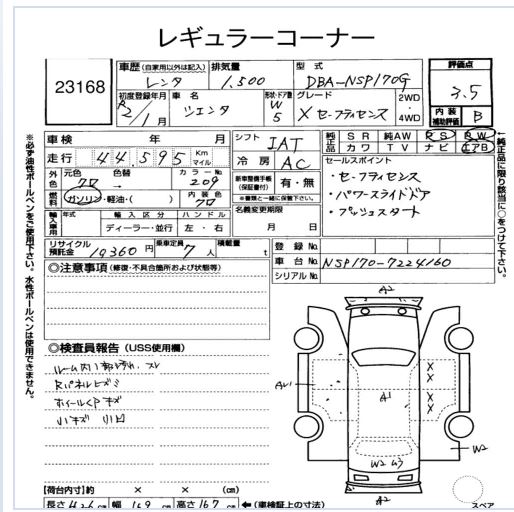 レギュラーコーナー
23168
車歴 (自家用以外は記入) 排気量 型式 評価点
レンタ 1,500 DBA-NSP170G 3.5
初度登録年月 車名 形状・ドア数 グレード 2WD・4WD 内装補助評価 B
R2/1月 シエンタ W 5 X セーフティセンス
車検 年 月 シフト IAT 純正品 SR 純AW RS BW
カワ TV ナビ エアB
走行 44,595 Km マイル 冷房 AC セールスポイント
外色 元色 色替 カラーNo. 新車整備手帳(保証書付) 有・無 ・セーフティセンス
クロ → 209 ※書類と一緒に保管下さい。 ・パワースライドドア
燃料 ガソリン・軽油・( ) 内装色 クロ 名義変更期限 ・プッシュスタート
輸入車用 年式 輸入区分 ハンドル 月 日
ディーラー・並行 左・右
リサイクル預託金 19360 円 乗車定員 7 人 積載量 t 登録No.
◎注意事項 (修復・不具合箇所および状態等) 車台No. NSP170-7224160
シリアルNo.
※必ず油性ボールペンをご使用下さい。水性ボールペンは使用できません。
←純正品に限り該当に○をつけて下さい。
◎検査員報告 (USS使用欄)
スレ
ホイールCPキズ
小キズ 小凹
A2
AW1
A1
×
×
×
×
W2
W2 U3
A2
【荷台内寸】約 × × (cm)
長さ 426 cm 幅 169 cm 高さ 167 cm ←(車検証上の寸法) スペア